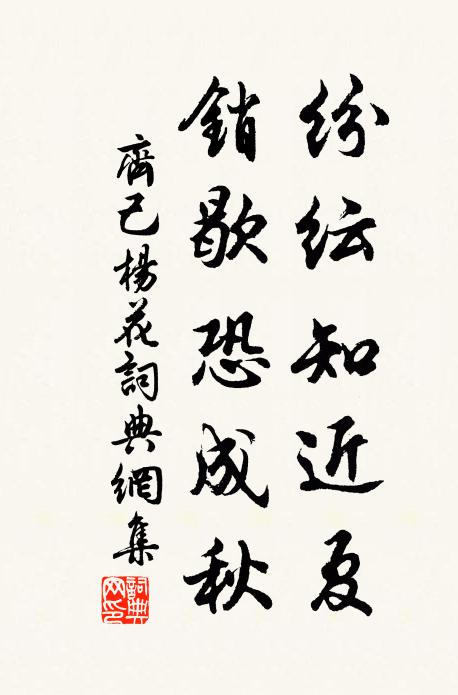 纷纭知近夏
銷歇恐成秋
齊己楊花詞典網集
詞典網印